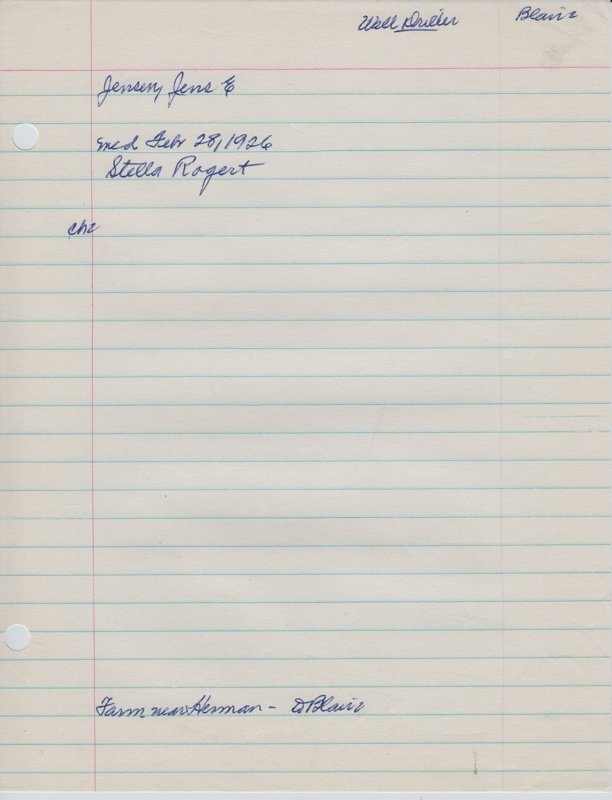 Well Driller Blair
Jensen, Jens E
med Feb 28, 1926
Stella Rogert
ch
Farm near Herman - to Blair